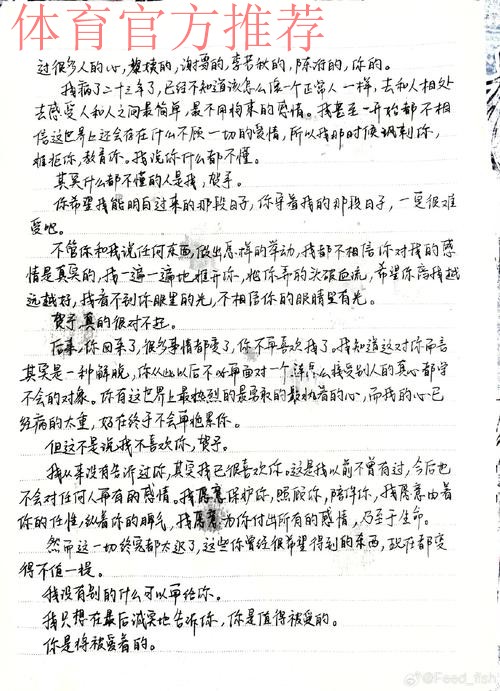 体育官方推荐
过很多人的心，楚模的，谢雪的，李若秋的，陈府的，你的。
我病了二十三年了，已经不知道该怎么像一个正常人一样，去和人相处
去感受人和人之间最简单，最不用拘束的感情。我甚至一开始都不相
信这世界上还会存在什么不顾一切的爱情，所以我那时候讽刺你，
推拒你，教育你。我说你什么都不懂。
其实什么都不懂的人是我，贺予。
你希望我能明白过来的那段日子，你守着我的那段日子，一定很难
受吧。
不管你和我说任何东西，做出怎样的举动，我都不相信你对我的感
情是真实的，我一遍一遍地推开你，把你弄的头破血流，希望你离我越
远越好，我看不到你眼里的光，不相信你的眼睛里有光。
贺予真的很对不起。
后来，你回来了，很多事情都变了，你不再喜欢我了。我知道这对你而言
其实是一种解脱，你从此以后不必再面对一个连怎么接受别人的真心都学
不会的对象。你有这世界上最热烈的最勇敢的最执着的心，而我的心已
经病的太重，好在终于不会再拖累你。
但这不是说我不喜欢你，贺予。
我从来没有告诉过你，其实我已很喜欢你。这是我以前不曾有过，今后也
不会对任何人再有的感情。我愿意保护你，照顾你，陪伴你，我愿意由着
你的任性，纵着你的脾气，我愿意为你付出所有的感情，乃至于生命。
然而这一切终究都太迟了，这些你曾经很希望得到的东西，现在都变
得不值一提。
我没有别的什么可以再给你。
我只想在最后诚实地告诉你，你是值得被爱的。
你是将被爱着的。
@Feed_fish